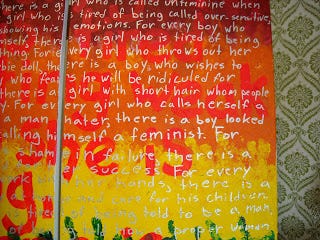 there is a girl who is called unfeminine when
girl who is tired of being called over-sensitive,
showing his emotions. For every boy who
mself, there is a girl who is tired of being
thing. For every girl who throws out her
bie doll, there is a boy who wishes to
y who fears he will be ridiculed for
there is a girl with short hair whom people
y. For every girl who calls herself a
a man-hater, there is a boy looked
calling himself a feminist. For
shame in failure, there is a
success. For every
his hands, there is a
and care for his children.
tired of being told to be a man
told how a proper woman